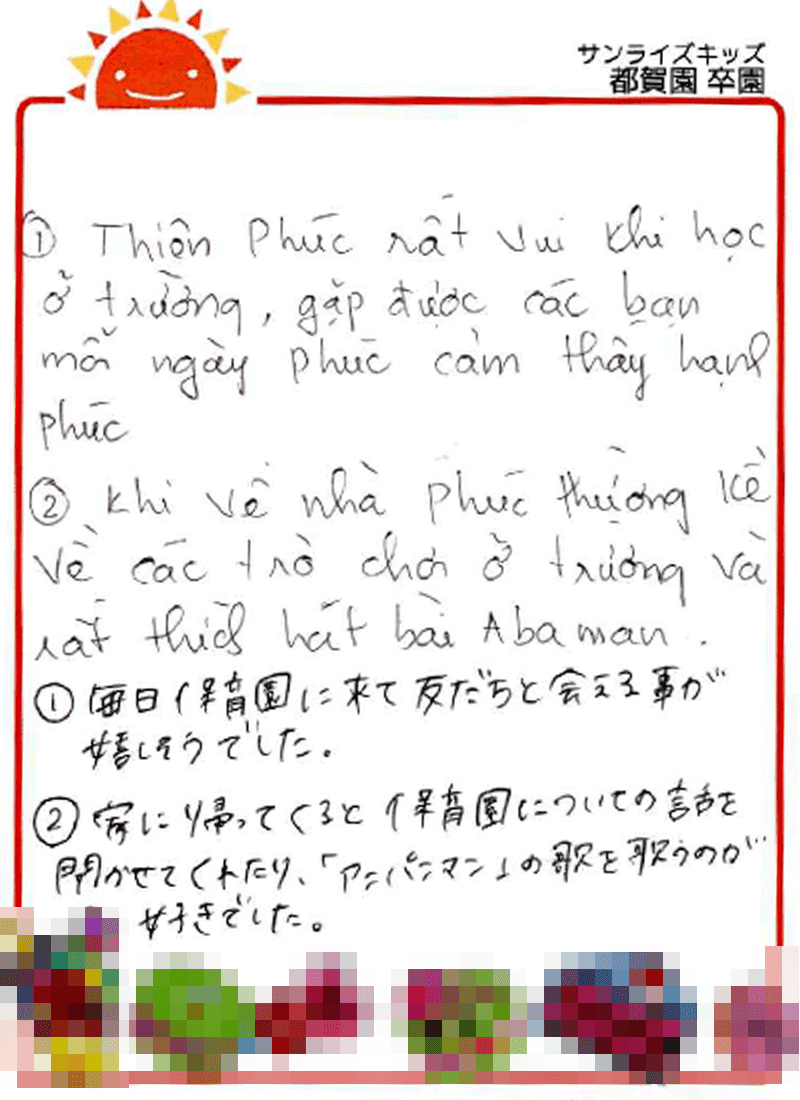 サンライズキッズ
都賀園 卒園
① Thiên Phúc rất vui khi học
ở trường, gặp được các bạn
mỗi ngày Phúc cảm thấy hạnh
phúc
② Khi về nhà Phúc thường kể
về các trò chơi ở trường và
rất thích hát bài Abaman.
①毎日保育園に来て友だちと会える事が
嬉しそうでした。
② 家に帰ってくると保育園についての話を
聞かせてくれたり、「アンパンマン」の歌を歌うのが
好きでした。